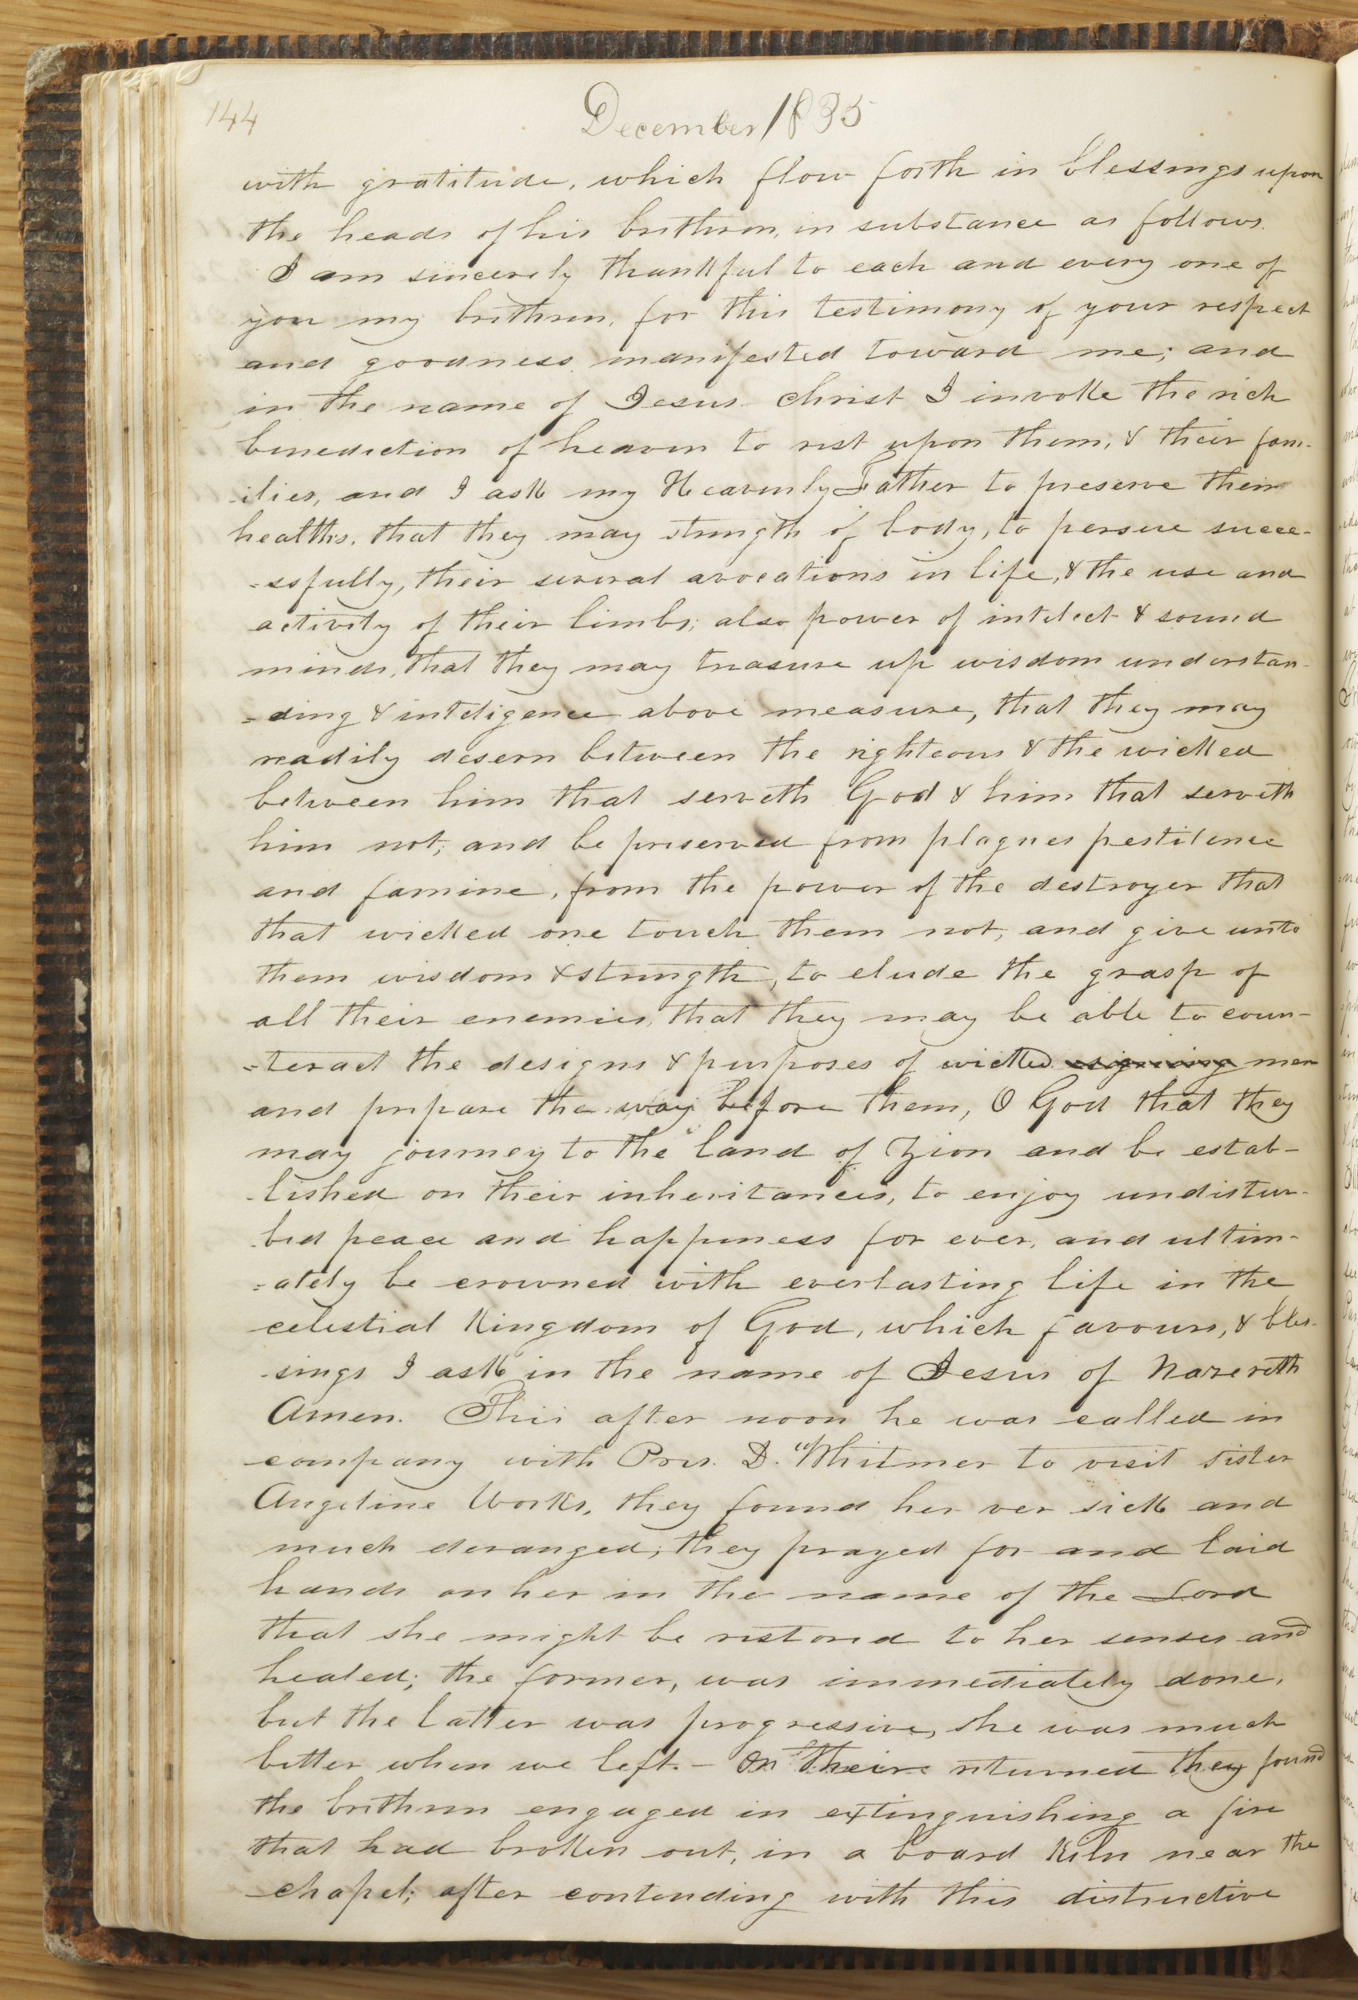 144
December 1835
with gratitude, which flow forth in blessings upon
the heads of his brethren, in substance as follows.
I am sincerely thankful to each and every one of
you my brethren, for this testimony of your respect
and goodness manifested toward me; and
in the name of Jesus Christ I invoke the rich
benediction of heaven to rest upon them, & their fam-
-ilies, and I ask my Heavenly Father to preserve their
healths, that they may strength of body, to persue succe-
-ssfully, their several avocations in life, & the use and
activity of their limbs; also power of intelect & sound
minds, that they may treasure up wisdom understan-
-ding & inteligence above measure, that they may
readily desern between the righteous & the wicked
between him that serveth God & him that serveth
him not; and be preserved from plagues pestilence
and famine, from the power of the destroyer that
that wicked one touch them not, and give unto
them wisdom & strength, to elude the grasp of
all their enemies, that they may be able to coun-
-teract the designs & purposes of wicked men
and prepare the way before them, O God that they
may journey to the land of Zion and be estab-
-lished on their inheritances, to enjoy undistur-
-bed peace and happiness for ever, and ultim-
-ately be crowned with everlasting life in the
celestial Kingdom of God, which favours, & bles-
-sings I ask in the name of Jesus of Nazereth
Amen. This after noon he was called in
company with Pres. D. Whitmer to visit sister
Angeline Works, they found her ver sick and
much deranged; they prayed for and laid
hands on her in the name of the Lord
that she might be restored to her senses and
healed; the former, was immediately done,
but the latter was progressive, she was much
better when we left.- On their returned they found
the brethren engaged in extinguishing a fire
that had broken out, in a board Kiln near the
chapel; after contending with this distructive